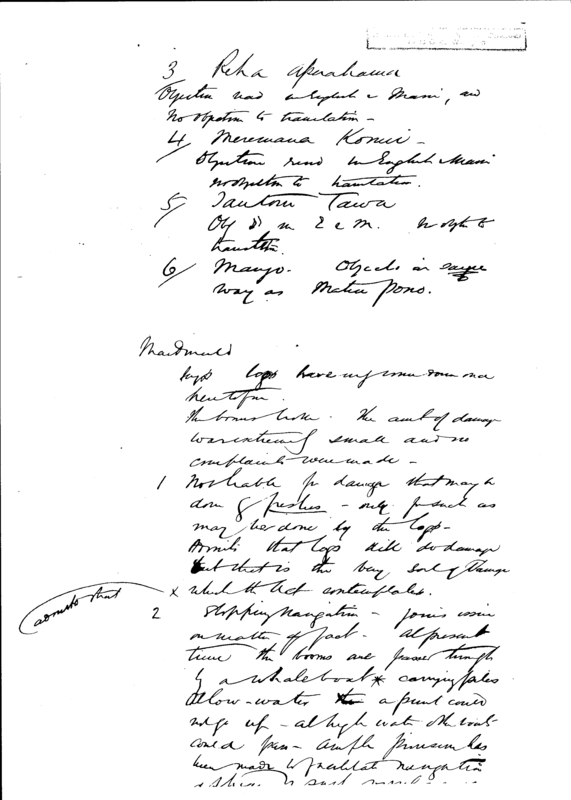 3 Reha Aperahama
Objection read in English & Maori, and
no objection to translation -
4 Meremana Konui -
Objection read in English & Maori
no objection to translation.
5 Tautoru Tawa
Obj in E & M. No obj to
translation.
6 Mango. Objects in same
way as Matiu Pono.
MacDonald
Says logs have come down
heretofore.
The booms broke. The amt of damage
was extremely small and no
complaints were made -
1 Not liable for damage that may be
done by freshes - only for such as
may be done by the logs -
Admits that logs will do damage
but that is the very sort of damage
x which the Act contemplates.
admits that
2 Stopping navigation - joins issue
on matter of fact - At present
time the booms are passed through
by a whaleboat * carrying
At low-water a punt could
not go up - at high water other boats
could pass - ample provision has
been made to facilitate navigation